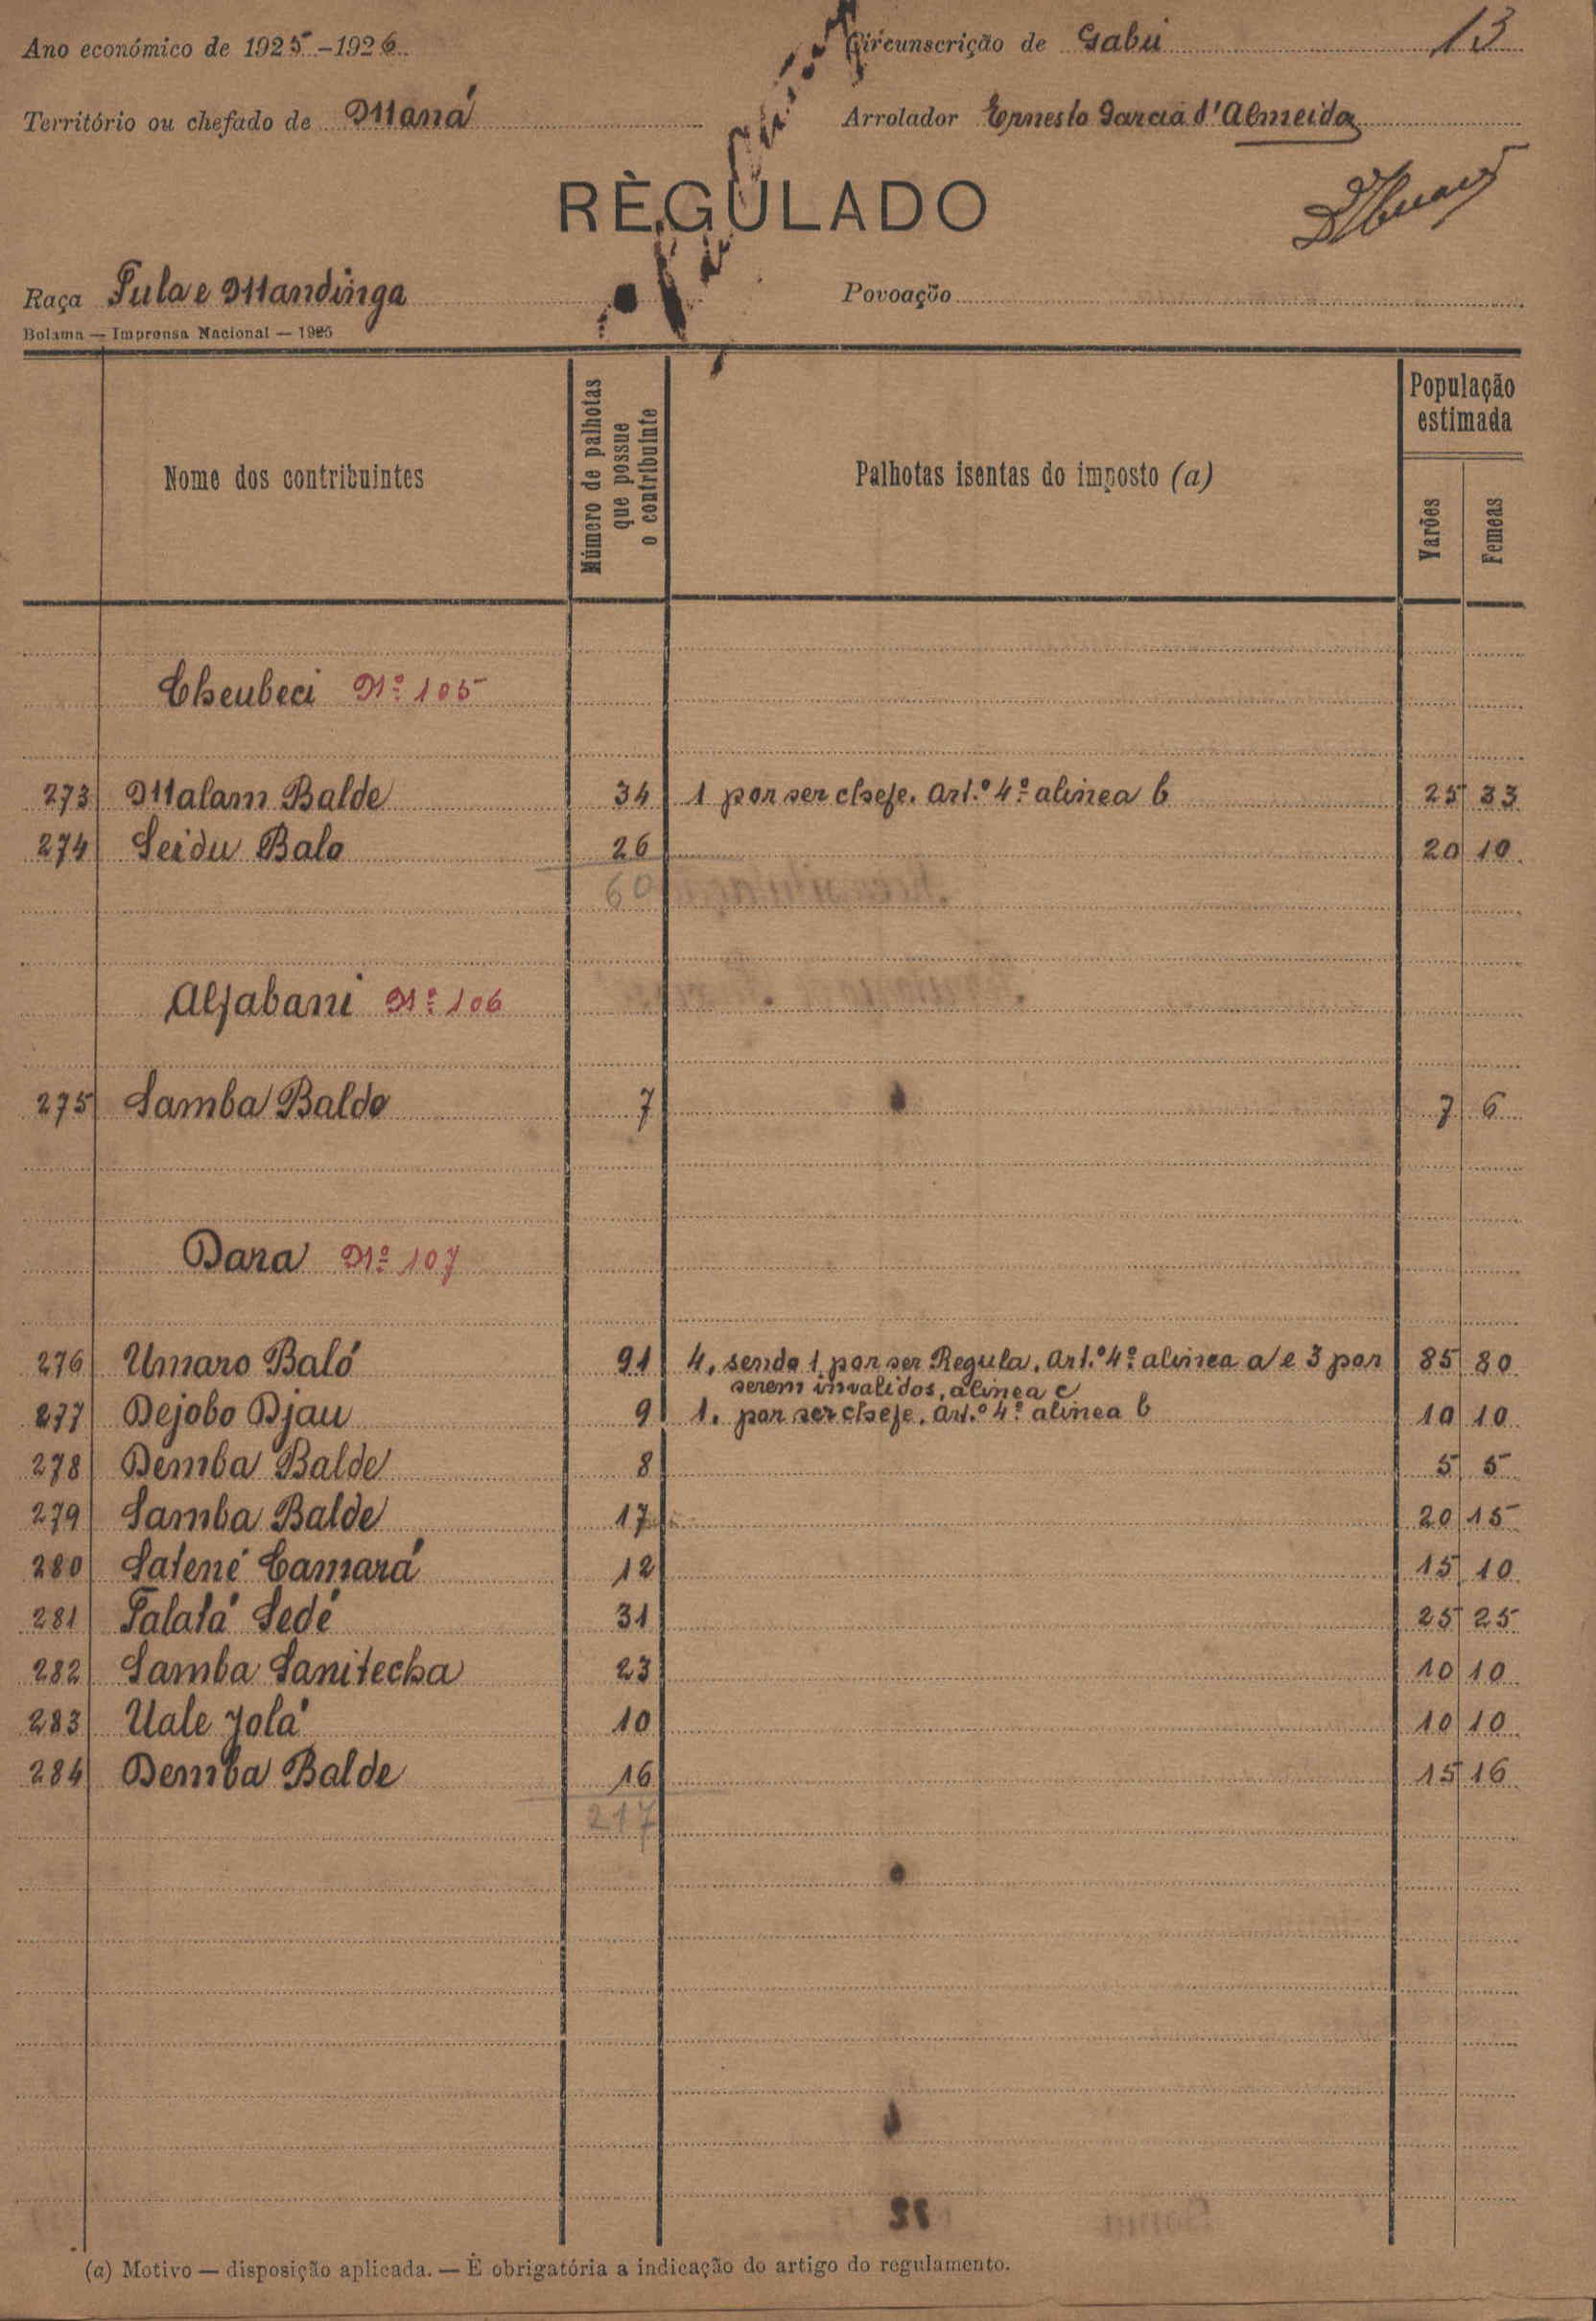 Ano económico de 1925-1926
Circunscrição de Gabú 13
Território ou chefado de Maná
Arrolador Ernesto Garcia d'Almeida
RÈGULADO
Raça Fula e Mandinga
Povoação
Bolama — Imprensa Nacional — 1925
Nome dos contribuintes
Número de palhotas que possue o contribuinte
Palhotas isentas do imposto (a)
População estimada
Varões
Femeas
Cheubeci Nº 105
273 Malam Balde 34 1 por ser chefe. Art.º 4º alinea b 25 33
274 Seidu Balo 26 20 10
60
Alfabani Nº 106
275 Samba Balde 7 7 6
Dara Nº 107
276 Umaro Baló 91 4, sendo 1 por ser Regula. Art.º 4º alinea a e 3 por 85 80
serem invalidos, alinea c
277 Dejobo Djau 9 1. por ser chefe. Art.º 4º alinea b 10 10
278 Demba Balde 8 5 5
279 Samba Balde 17 20 15
280 Satené Camará 12 15 10
281 Falatá Sedé 31 25 25
282 Samba Sanitecha 23 10 10
283 Uale Jolá 10 10 10
284 Demba Balde 16 15 16
217
(a) Motivo — disposição aplicada. — É obrigatória a indicação do artigo do regulamento.